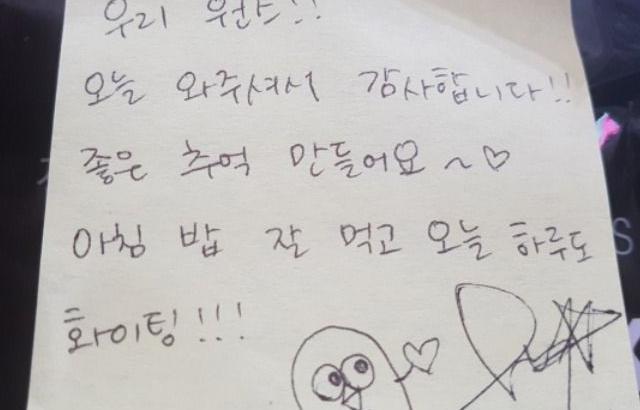 우리 원스!!
오늘 와주셔서 감사합니다!!
좋은 추억 만들어요~♡
아침 밥 잘 먹고 오늘 하루도
화이팅!!!
S